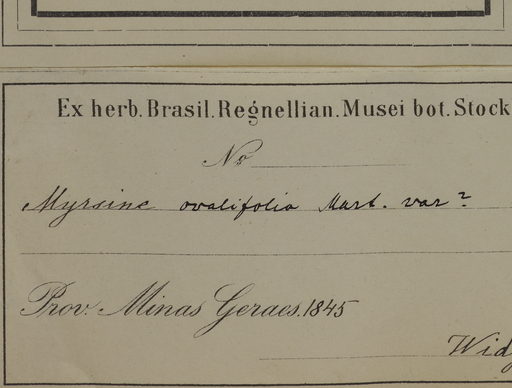 Ex herb. Brasil. Regnellian. Musei bot. Stock
No
Myrsine ovalifolia Mart. var?
Prov. Minas Geraes. 1845
Wid